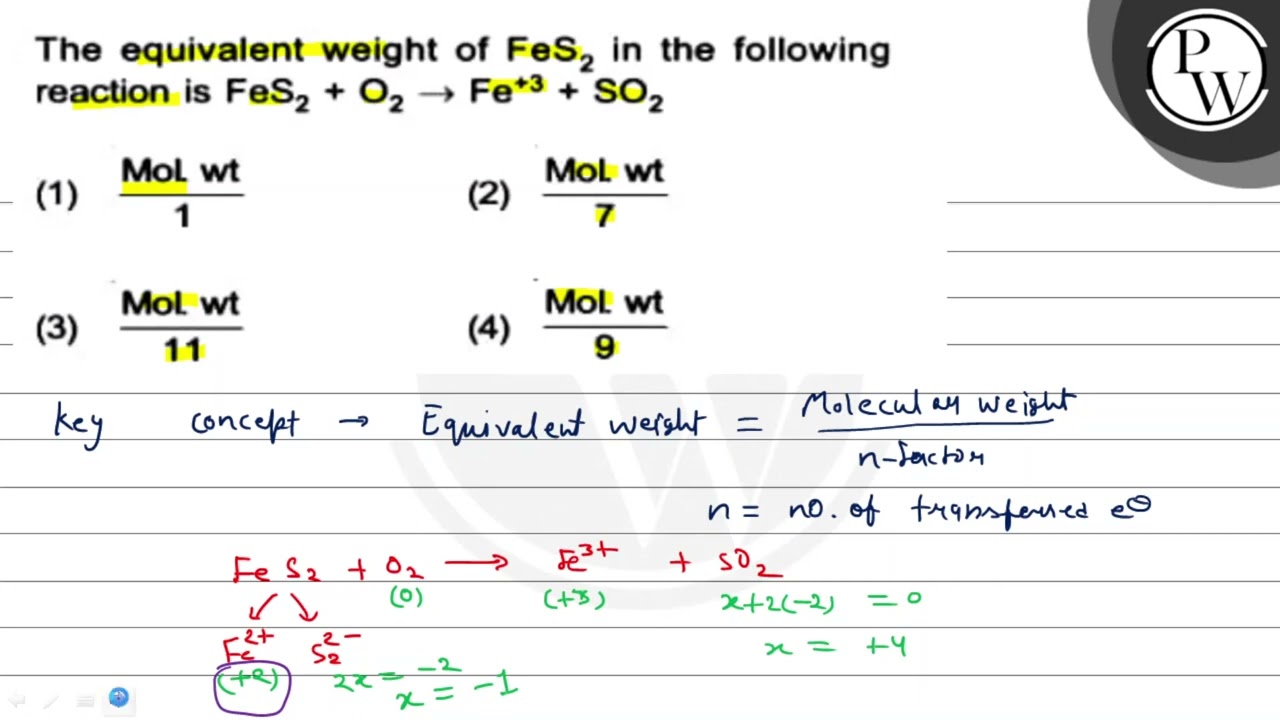 The equivalent weight of FeS₂ in the following
reaction is FeS₂ + O₂ → Fe⁺³ + SO₂
P
W
(1) Mol. wt / 1
(2) Mol. wt / 7
(3) Mol. wt / 11
(4) Mol. wt / 9
Key concept → Equivalent weight = Molecular weight / n-factor
n = no. of transferred e⊖
Fe S₂ + O₂ → Fe³⁺ + SO₂
(0) (+3) x+2(-2) = 0
Fe²⁺ S₂²⁻ x = +4
(+2) 2x = -2
x = -1